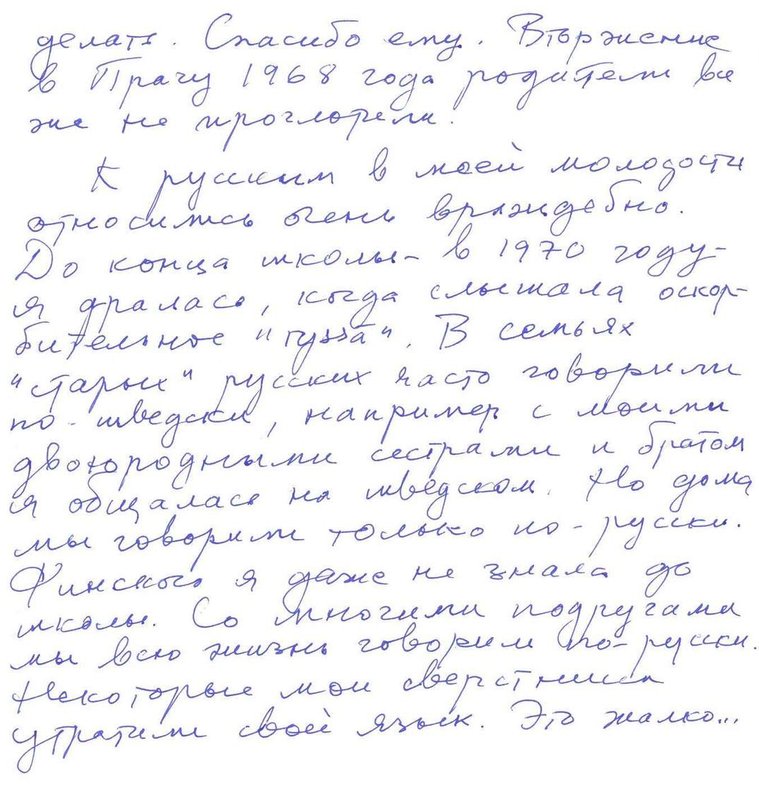 делать. Спасибо ему. Вторжение
в Прагу 1968 года родители все
же не проглотели.
К русским в моей молодости
относились очень враждебно.
До конца школы - в 1970 году -
я дралась, когда слышала оскор-
бительное "рюсся". В семьях
"старых" русских часто говорили
по-шведски, например с моими
двоюродными сестрами и братом
я общалась на шведском. Но дома
мы говорили только по-русски.
Финского я даже не знала до
школы. Со многими подругами
мы всю жизнь говорим по-русски.
Некоторые мои сверстники
утратили свой язык. Это жалко...